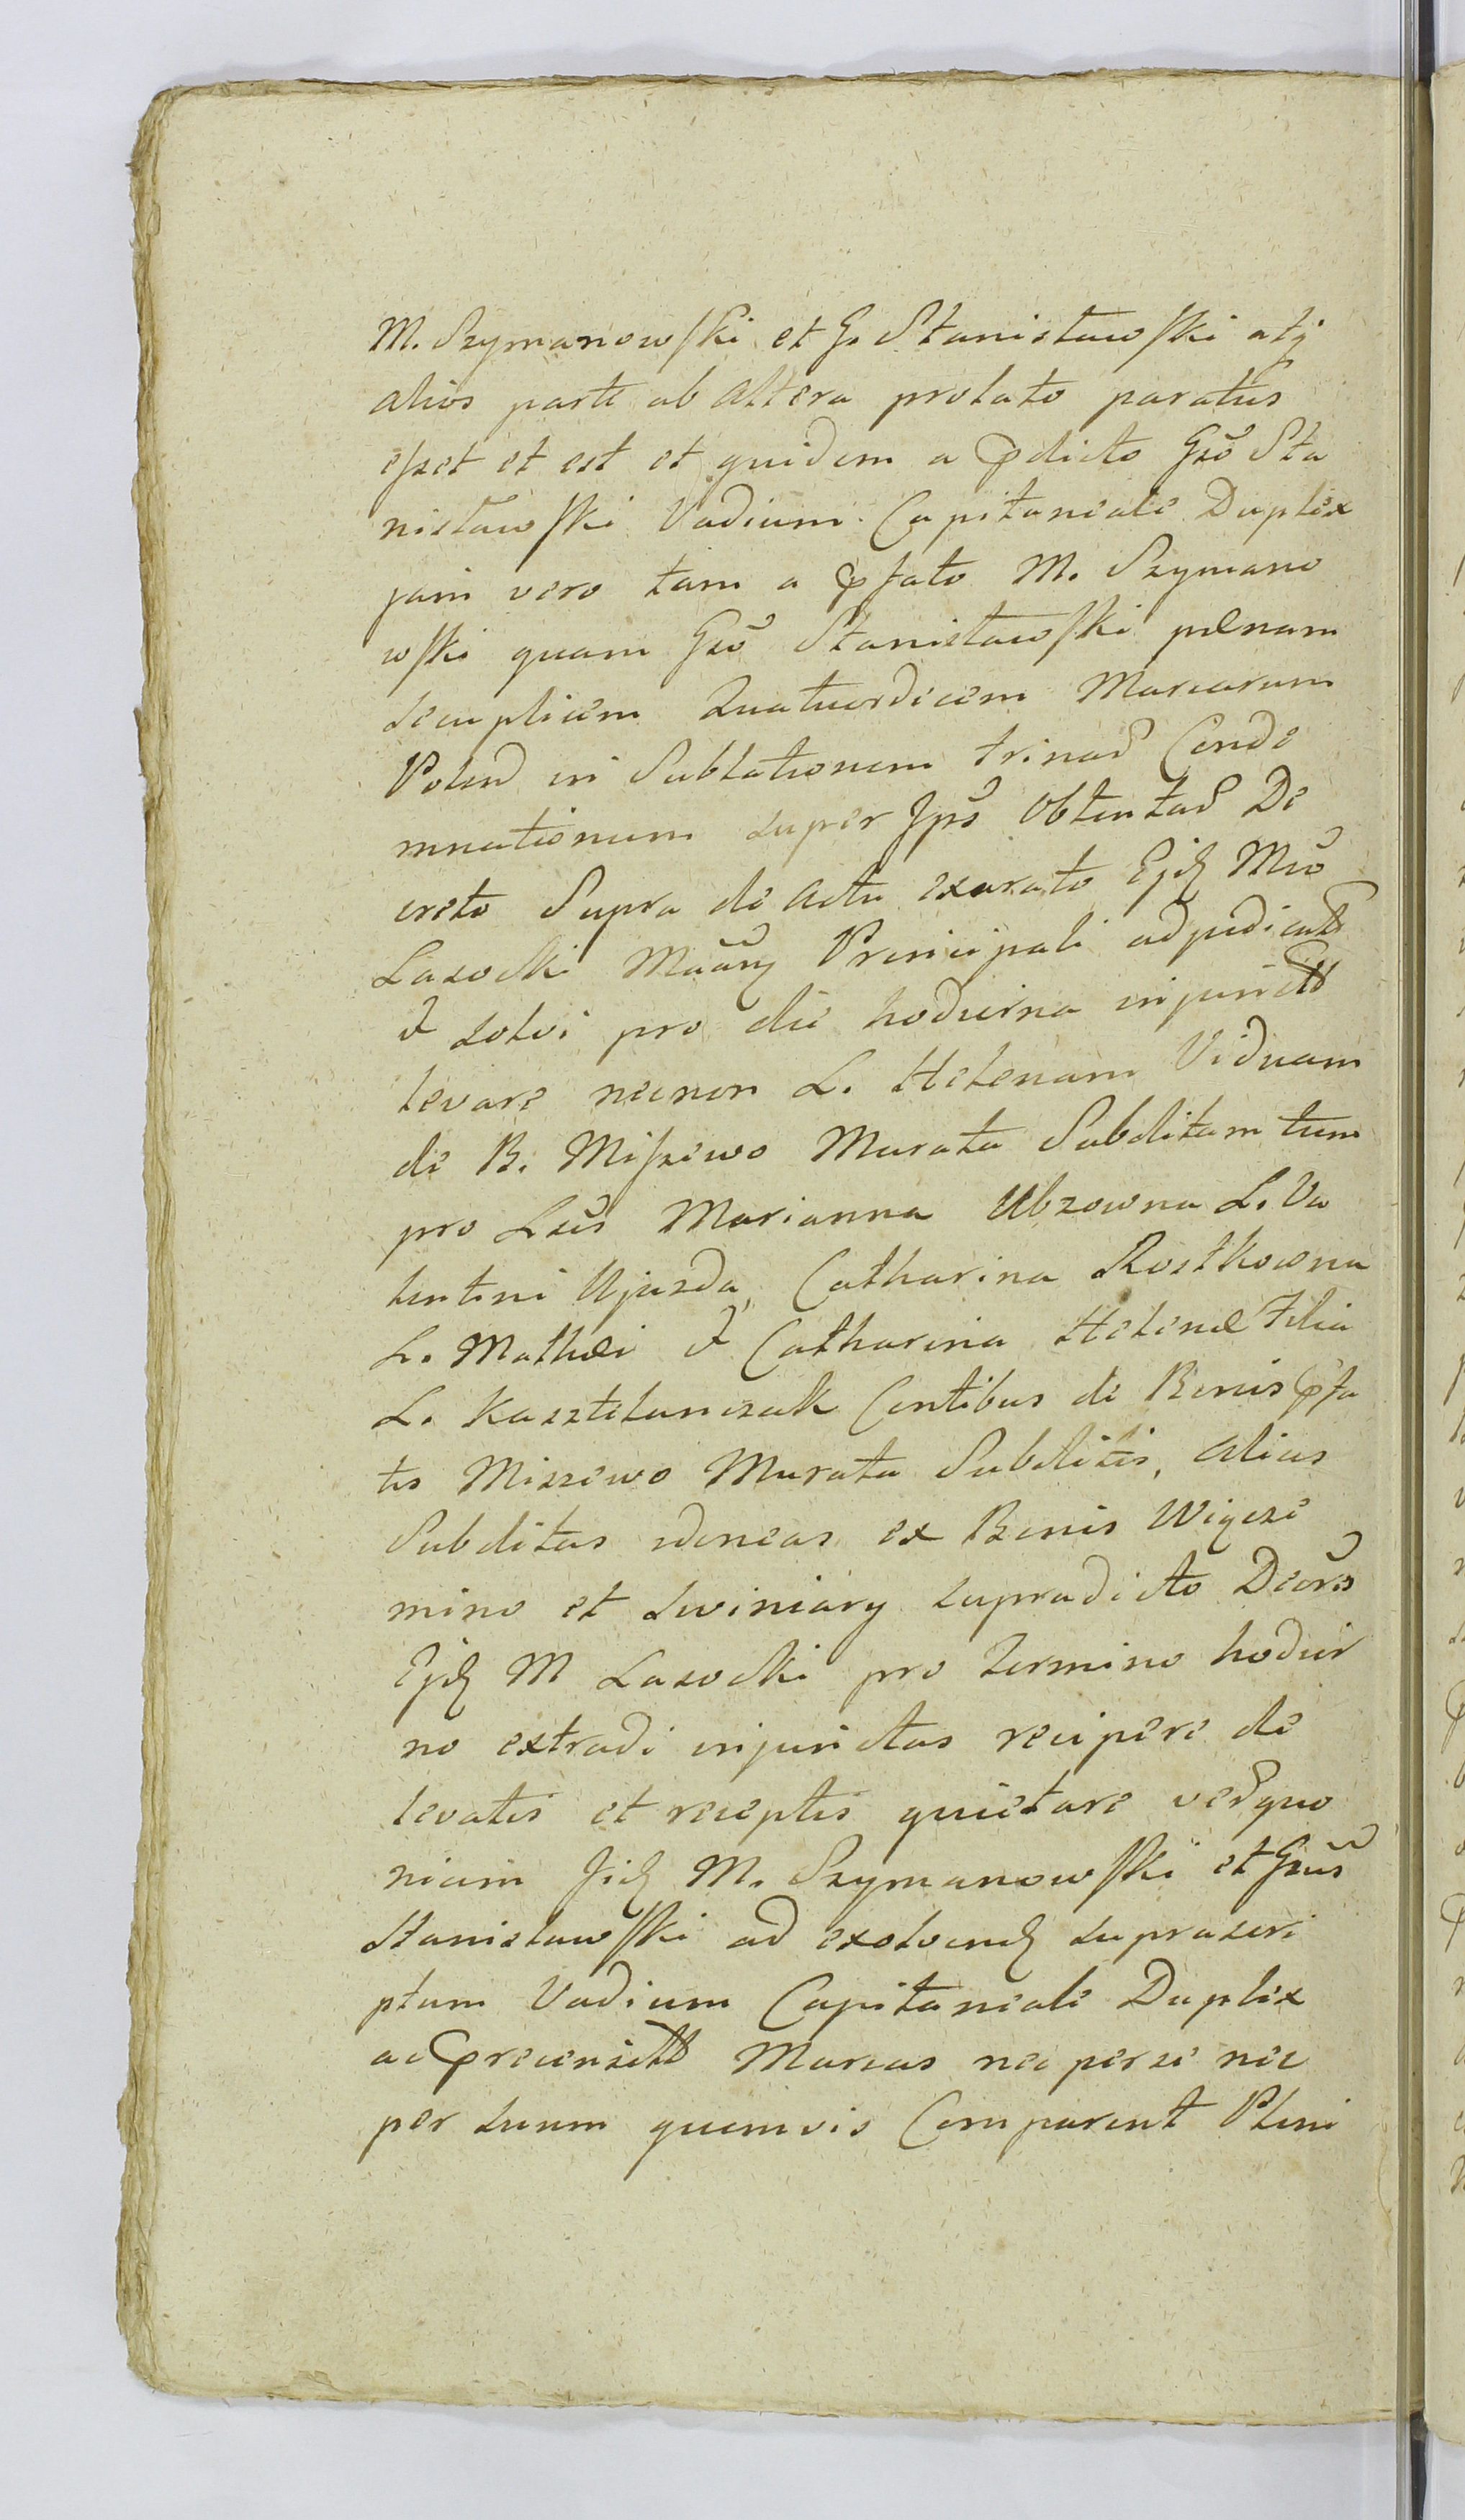 M. Szymanowski et G. Stanisławski atq
alios parte ab altera prolato paratus
eszet et est et quidem a pdicto Gso Sta
nisławski Vadium Capitaneale Duplex
jam vero tam a pfato M. Szymano
wski quam Gso Stanisławski pænam
Secuplicem Quatuordicem Marcarum
Polend in Sublationem trinad Conde
mnationum super Jps Obtentad De
creto Supra de actu exarato Ejd Mco
Lasocki Principali adjudicatt
& solvi pro die hodierna injunctt
levare necnon L. Helenam Viduam
de B. Miszewo Murata Subditam tum
pro Lius Marianna Ubzowna L. Va
lentini Ujazda, Catharina Rostkowna
L. Mathæi & Catharina Helenæ Filia
L. Kasztelanczak Contibus de Bonis pfa
tis Miszewo Murata Subditis, alias
Subditas idoneas ex Bonis Wigczé
mino et Swiniary supradicto Decro
Ejd M Lasocki pro termino hodier
no extradi injunctas recipere de
levatis et receptis quietare vedquo
niam Jid M. Szymanowski et Gsus
Stanisławski ad exolvend suprascri
ptum Vadium Capitaneale Duplex
ac precensitt Marcas nec per se nec
per suum quemvis Comparent Pleni